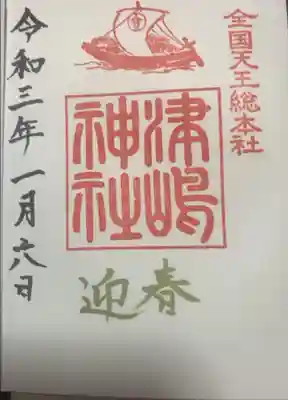 全国天王総本社
津嶋
神社
迎春
令和三年一月六日